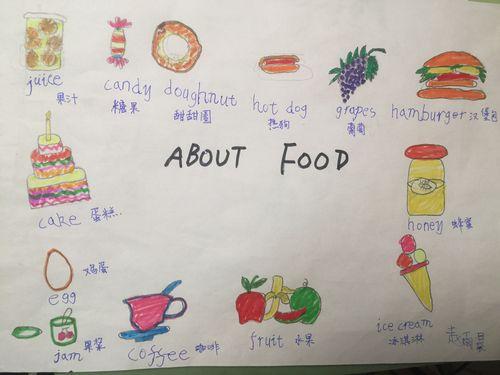 juice
果汁
candy
糖果
doughnut
甜甜圈
hot dog
热狗
grapes
葡萄
hamburger 汉堡包
ABOUT FOOD
cake 蛋糕
honey 蜂蜜
鸡蛋
egg
jam 果浆
coffee 咖啡
fruit 水果
ice cream
冰淇淋